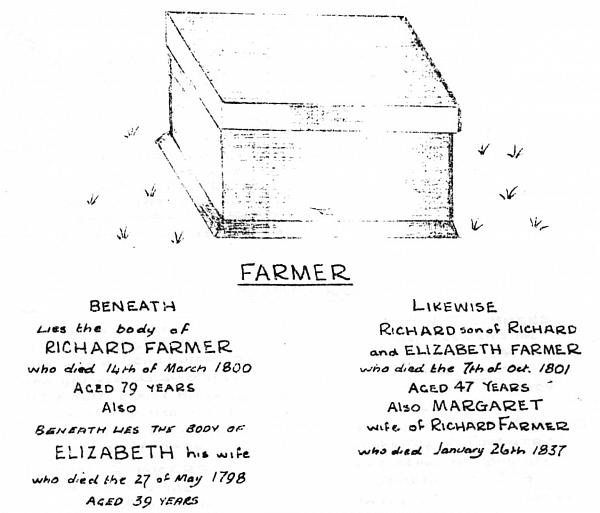 FARMER
BENEATH
Lies the body of
RICHARD FARMER
who died 14th of March 1800
AGED 79 YEARS
ALSO
BENEATH LIES THE BODY OF
ELIZABETH his wife
who died the 27 of May 1798
AGED 39 YEARS
LIKEWISE
RICHARD son of RICHARD
and ELIZABETH FARMER
who died the 7th of Oct. 1801
AGED 47 YEARS
ALSO MARGARET
wife of RICHARD FARMER
who died January 26th 1837